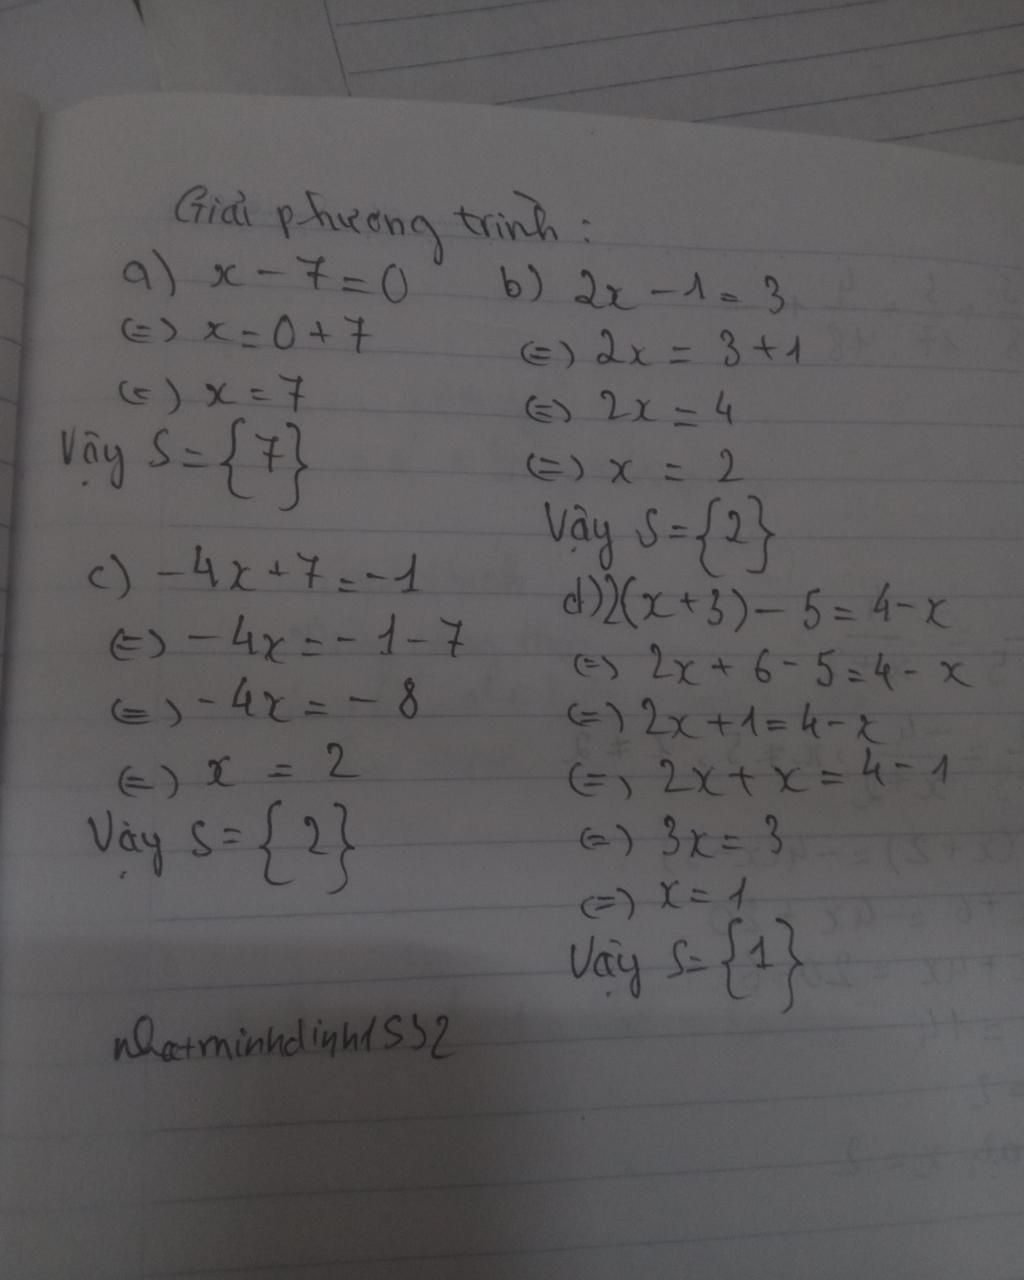 Giải phương trình:
a) x - 7 = 0
(=) x = 0 + 7
(=) x = 7
Vậy S = {7}
b) 2x - 1 = 3
(=) 2x = 3 + 1
(=) 2x = 4
(=) x = 2
Vậy S = {2}
c) -4x + 7 = -1
(=) -4x = -1 - 7
(=) -4x = -8
(=) x = 2
Vậy S = {2}
d) 2(x + 3) - 5 = 4 - x
(=) 2x + 6 - 5 = 4 - x
(=) 2x + 1 = 4 - x
(=) 2x + x = 4 - 1
(=) 3x = 3
(=) x = 1
Vậy S = {1}